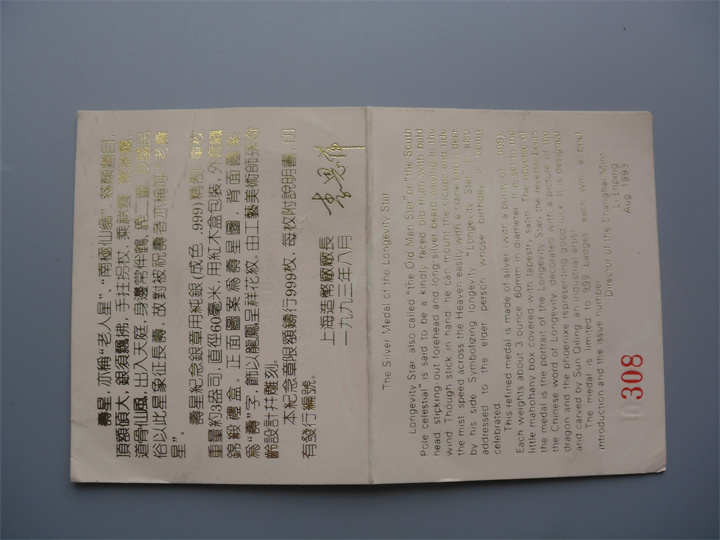 壽星，亦稱“老人星”、“南極仙翁”，
頂額碩大，銀須飄拂，手拄拐杖，乘
道骨仙風，出入天庭，身邊常伴鶴、鹿二
俗以此星象征長壽，故對被祝壽者亦稱呼“老壽
星”。
壽星紀念銀章用純銀(成色 .999)精制，單枚
重量約3盎司，直徑60毫米，用紅木盒包裝，外套織
錦緞禮盒。正面圖案為壽星圖，背面圖案
為“壽”字，飾以龍鳳呈祥花紋，由工藝美術師孫奇
齡設計并雕刻。
本紀念章限額鑄行999枚，每枚附說明書，印
有發行編號。
上海造幣廠廠長
一九九三年八月
The Silver Medal of the Longevity Star
Longevity Star, also called "the Old Man Star" or "the South
Pole celestial" is said to be a kindly faced old man with a bald
head stipking-out forehead and long-silver beard waving in the
wind. Though stick in hand, he can mount the clouds and ride
the mist, speed across the Heaven easily with a crane and a deer
by his side. Symbolizing longevity, "Longevity Star" is also
addressed to the elder person whose birthday is being
celebrated.
This refined medal is made of silver with a purity of .999.
Each weights about 3 ounce, 60mm diameter. It is set in the
little mahohany box covered with tapestry satin. The obverse of
the medal is the portrait of the Longevity Star, the reverse bears
the Chinese word of Longevity decorated with a picture of the
dragon and the phoenixe representing good luck. It is designed
and carved by Sun Qiling an industrial artist.
The medal is limited to 999 badges, each with a brief
introduction and the issue number.
Director of the Shanghai Mint
Li Enping
Aug. 1993
0308